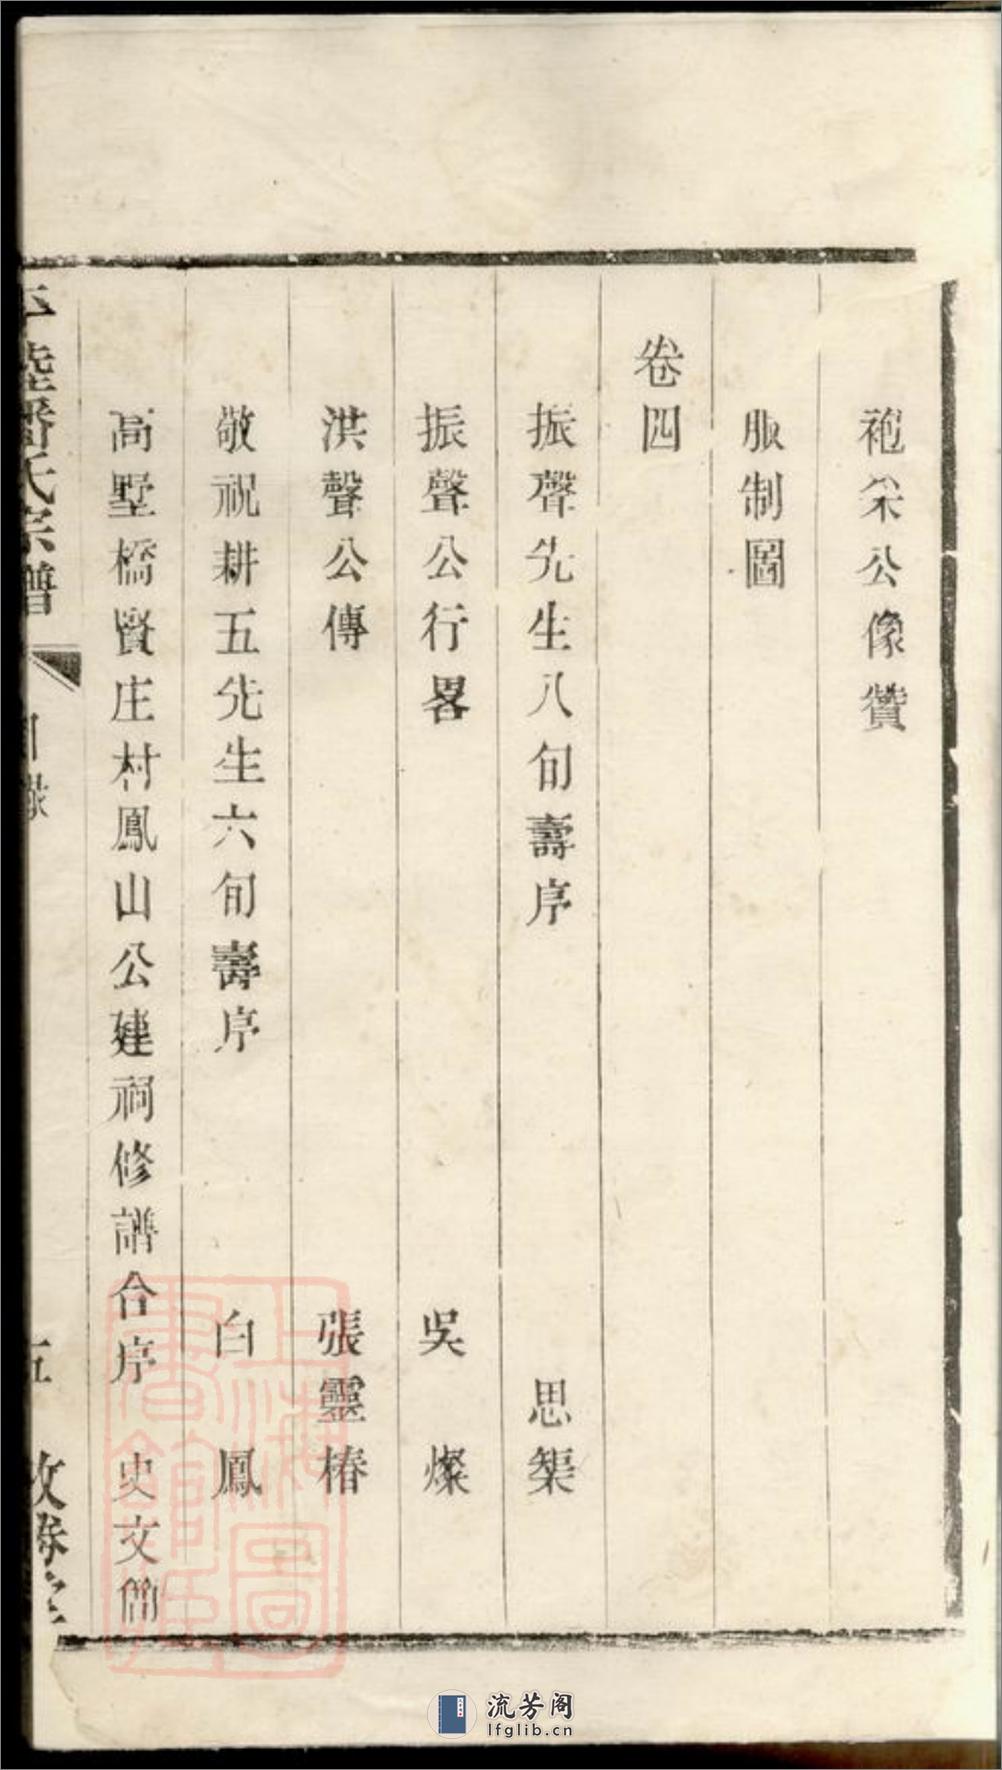 袍尖公像贊
服制圖
卷四
振聲先生八旬壽序 思榘
振聲公行畧 吳燦
洪聲公傳 張靈椿
敬祝耕五先生六旬壽序 白鳳
高墅橋賢庄村鳳山公建祠修譜合序 史文
潘氏宗譜
目錄
五
上海圖書館藏
流芳阁
lfglib.cn